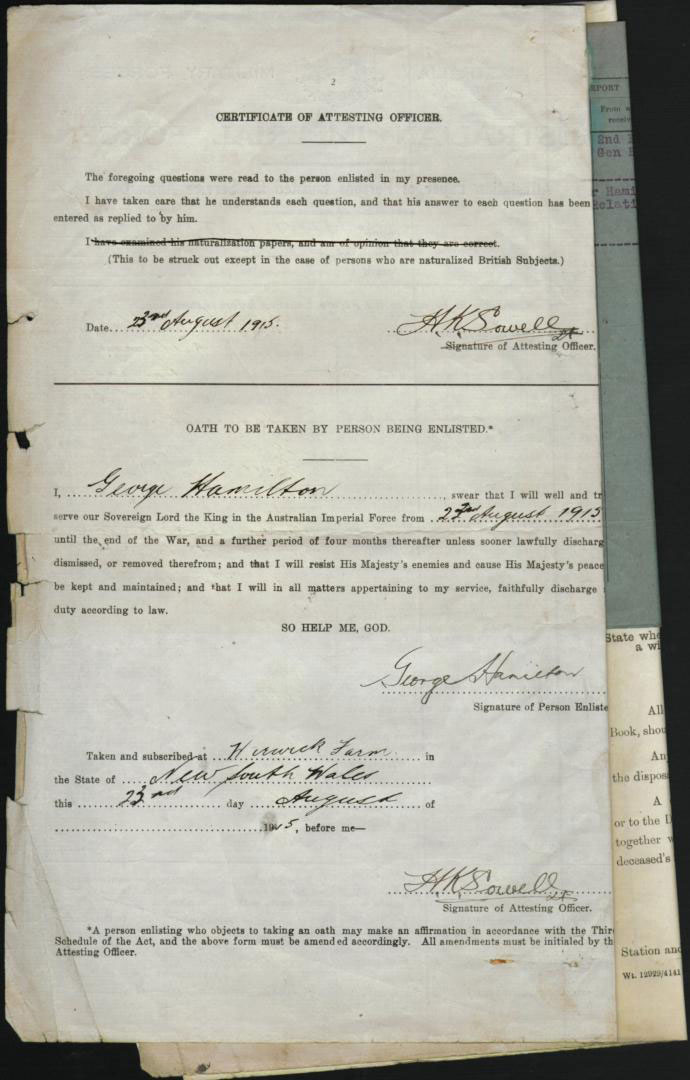 2
CERTIFICATE OF ATTESTING OFFICER.
The foregoing questions were read to the person enlisted in my presence.
I have taken care that he understands each question, and that his answer to each question has been
entered as replied to by him.
I have examined his naturalization papers, and am of opinion that they are correct.
(This to be struck out except in the case of persons who are naturalized British Subjects.)
Date 23rd August 1915. H.K. Sowell Lt
Signature of Attesting Officer.
OATH TO BE TAKEN BY PERSON BEING ENLISTED.*
I, George Hamilton, swear that I will well and tr
serve our Sovereign Lord the King in the Australian Imperial Force from 23rd August 1915
until the end of the War, and a further period of four months thereafter unless sooner lawfully discharg
dismissed, or removed therefrom; and that I will resist His Majesty's enemies and cause His Majesty's peace
be kept and maintained; and that I will in all matters appertaining to my service, faithfully discharge
duty according to law.
SO HELP ME, GOD.
George Hamilton
Signature of Person Enliste
Taken and subscribed at Warwick Farm in
the State of New South Wales
this 23rd day August of
1915, before me—
H.K. Sowell Lt
Signature of Attesting Officer.
*A person enlisting who objects to taking an oath may make an affirmation in accordance with the Thir
Schedule of the Act, and the above form must be amended accordingly. All amendments must be initialed by th
Attesting Officer.
EPORT
From w
receiv
2nd
Gen
r Hami
Relati
State whe
a wi
All
Book, shou
An
the dispos
A
or to the D
together w
deceased's
Station and
Wt. 12929/4141